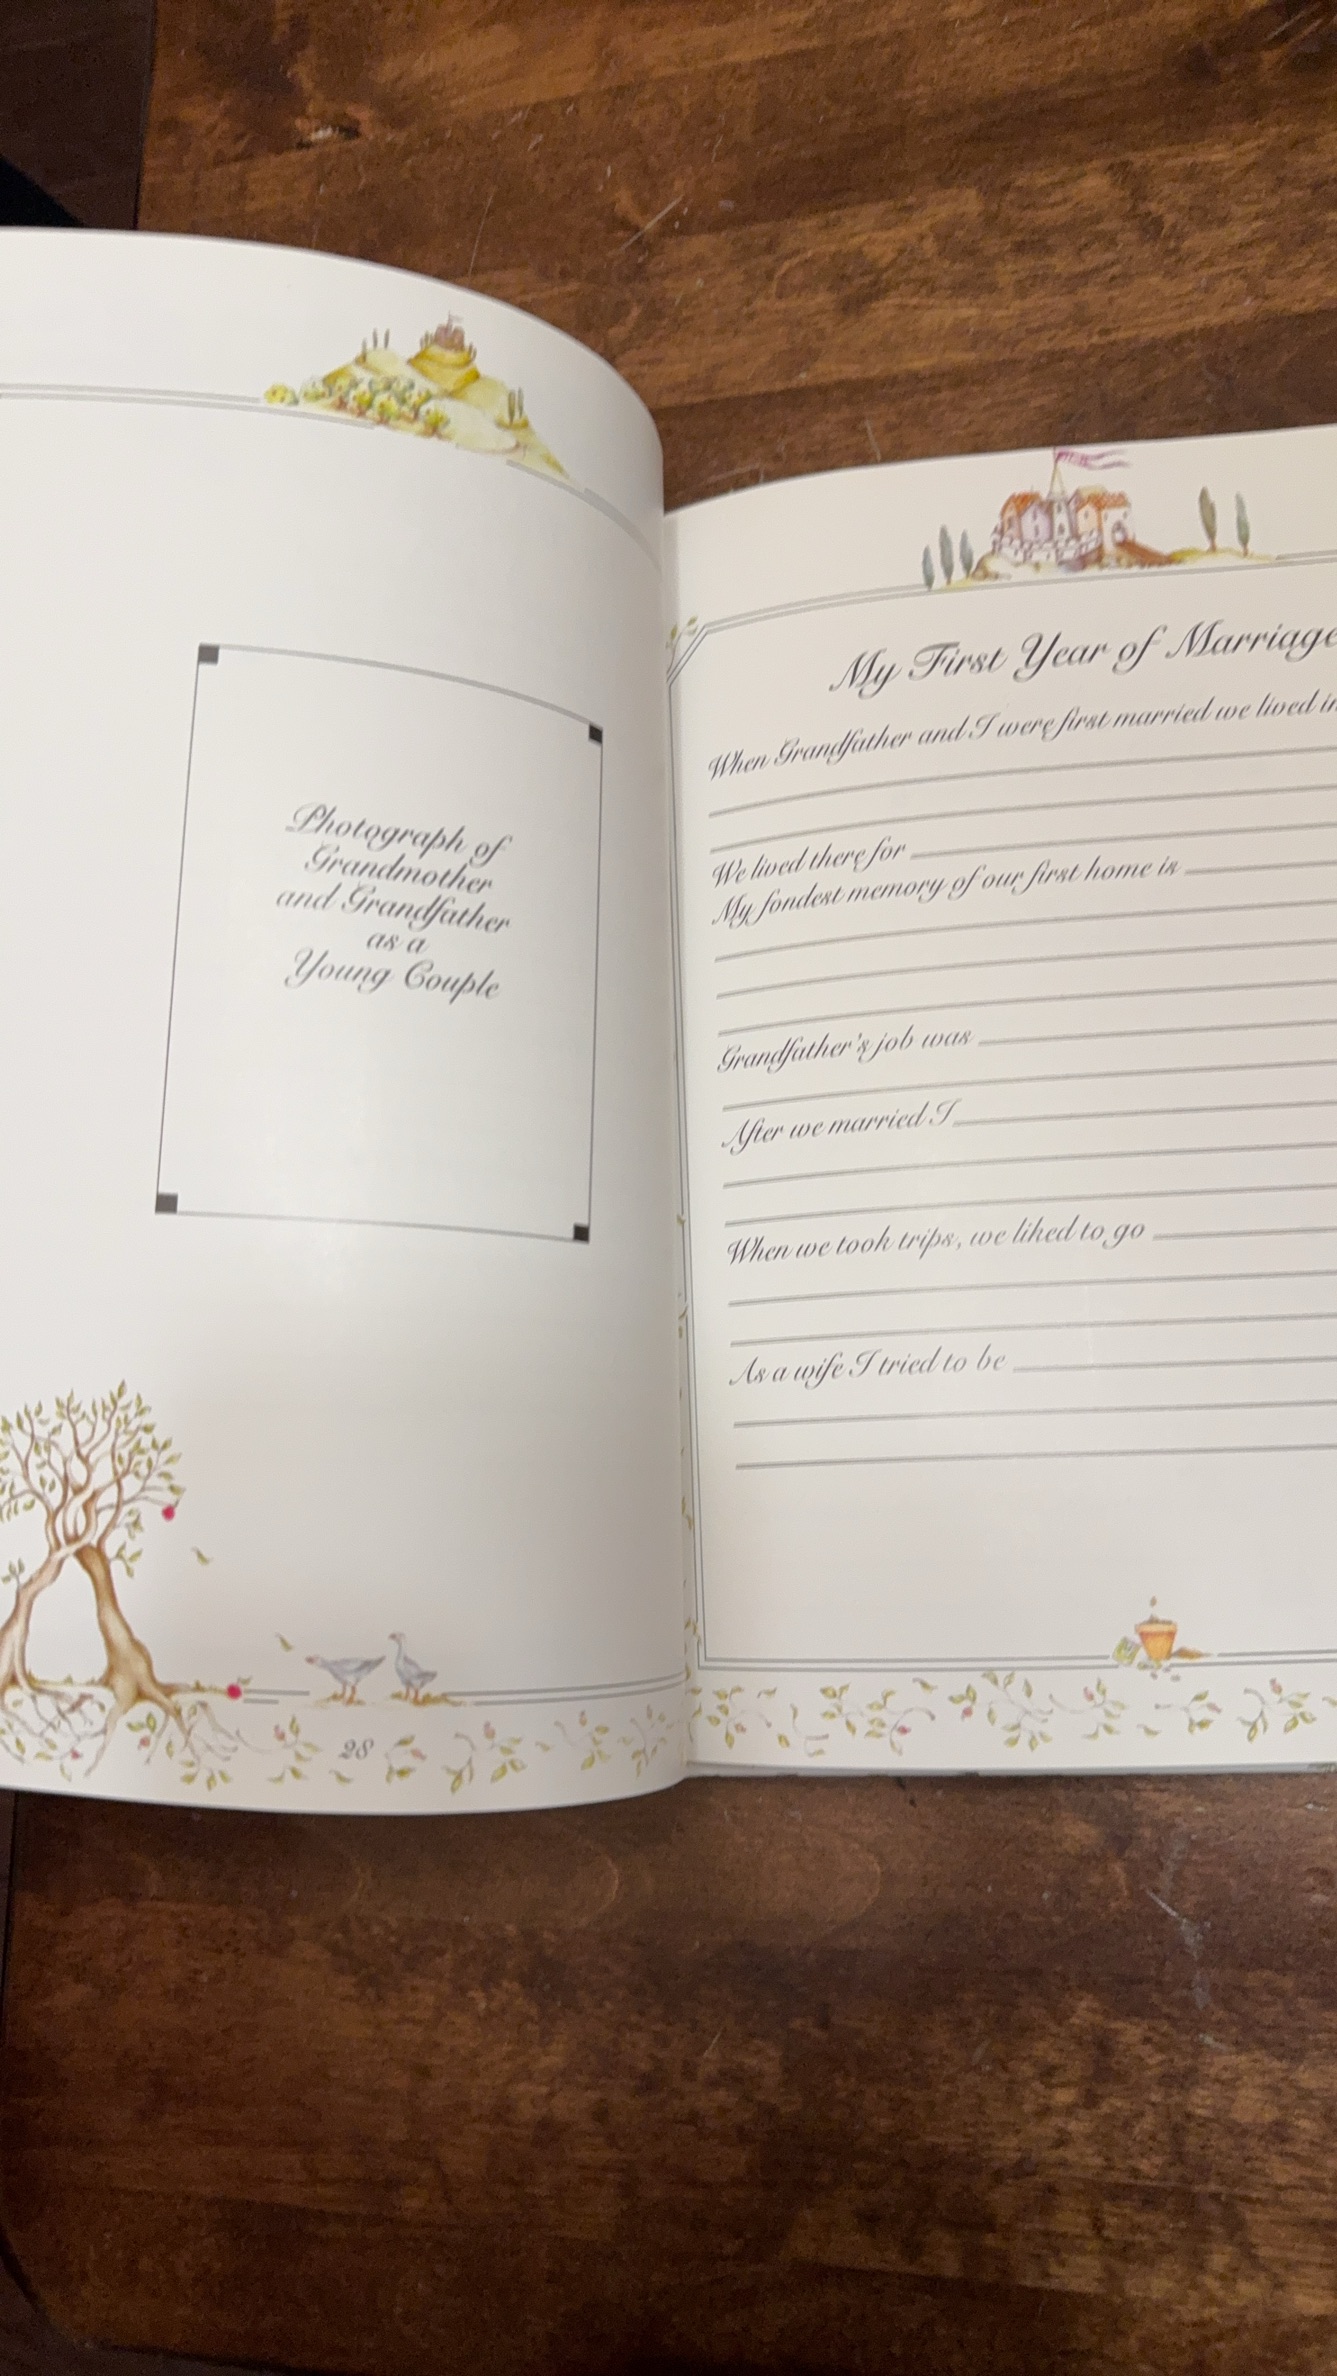 Photograph of
Grandmother
and Grandfather
as a
Young Couple
28
My First Year of Marriage
When Grandfather and I were first married we lived in
We lived there for
My fondest memory of our first home is
Grandfather's job was
After we married I
When we took trips, we liked to go
As a wife I tried to be